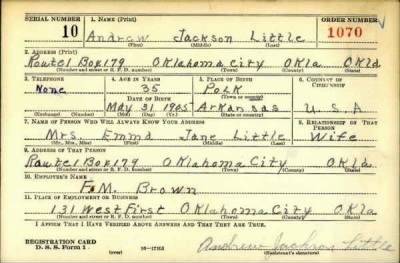 SERIAL NUMBER 1. NAME (Print) ORDER NUMBER
10 Andrew Jackson Little 1070
(First) (Middle) (Last)
2. ADDRESS (Print)
Route 1 Box 179 Oklahoma City Okla Okla
(Number and street or R. F. D. number) (Town) (County) (State)
3. TELEPHONE 4. AGE IN YEARS 5. PLACE OF BIRTH 6. COUNTRY OF CITIZENSHIP
None 35 Polk
DATE OF BIRTH
May 31 1905 Arkansas U.S.A
(Exchange) (Number) (Mo.) (Day) (Yr.) (State or country)
7. NAME OF PERSON WHO WILL ALWAYS KNOW YOUR ADDRESS 8. RELATIONSHIP OF THAT PERSON
Mrs. Emma Jane Little Wife
(Mr., Mrs., Miss) (First) (Middle) (Last)
9. ADDRESS OF THAT PERSON
Route 1 Box 179 Oklahoma City Okla.
(Number and street or R. F. D. number) (Town) (County) (State)
10. EMPLOYER'S NAME
F. M. Brown
11. PLACE OF EMPLOYMENT OR BUSINESS
131 West First Oklahoma City Okla
(Number and street or R. F. D. number) (Town) (County) (State)
I AFFIRM THAT I HAVE VERIFIED ABOVE ANSWERS AND THAT THEY ARE TRUE.
REGISTRATION CARD
D. S. S. Form 1 Andrew Jackson Little
(Registrant's signature)